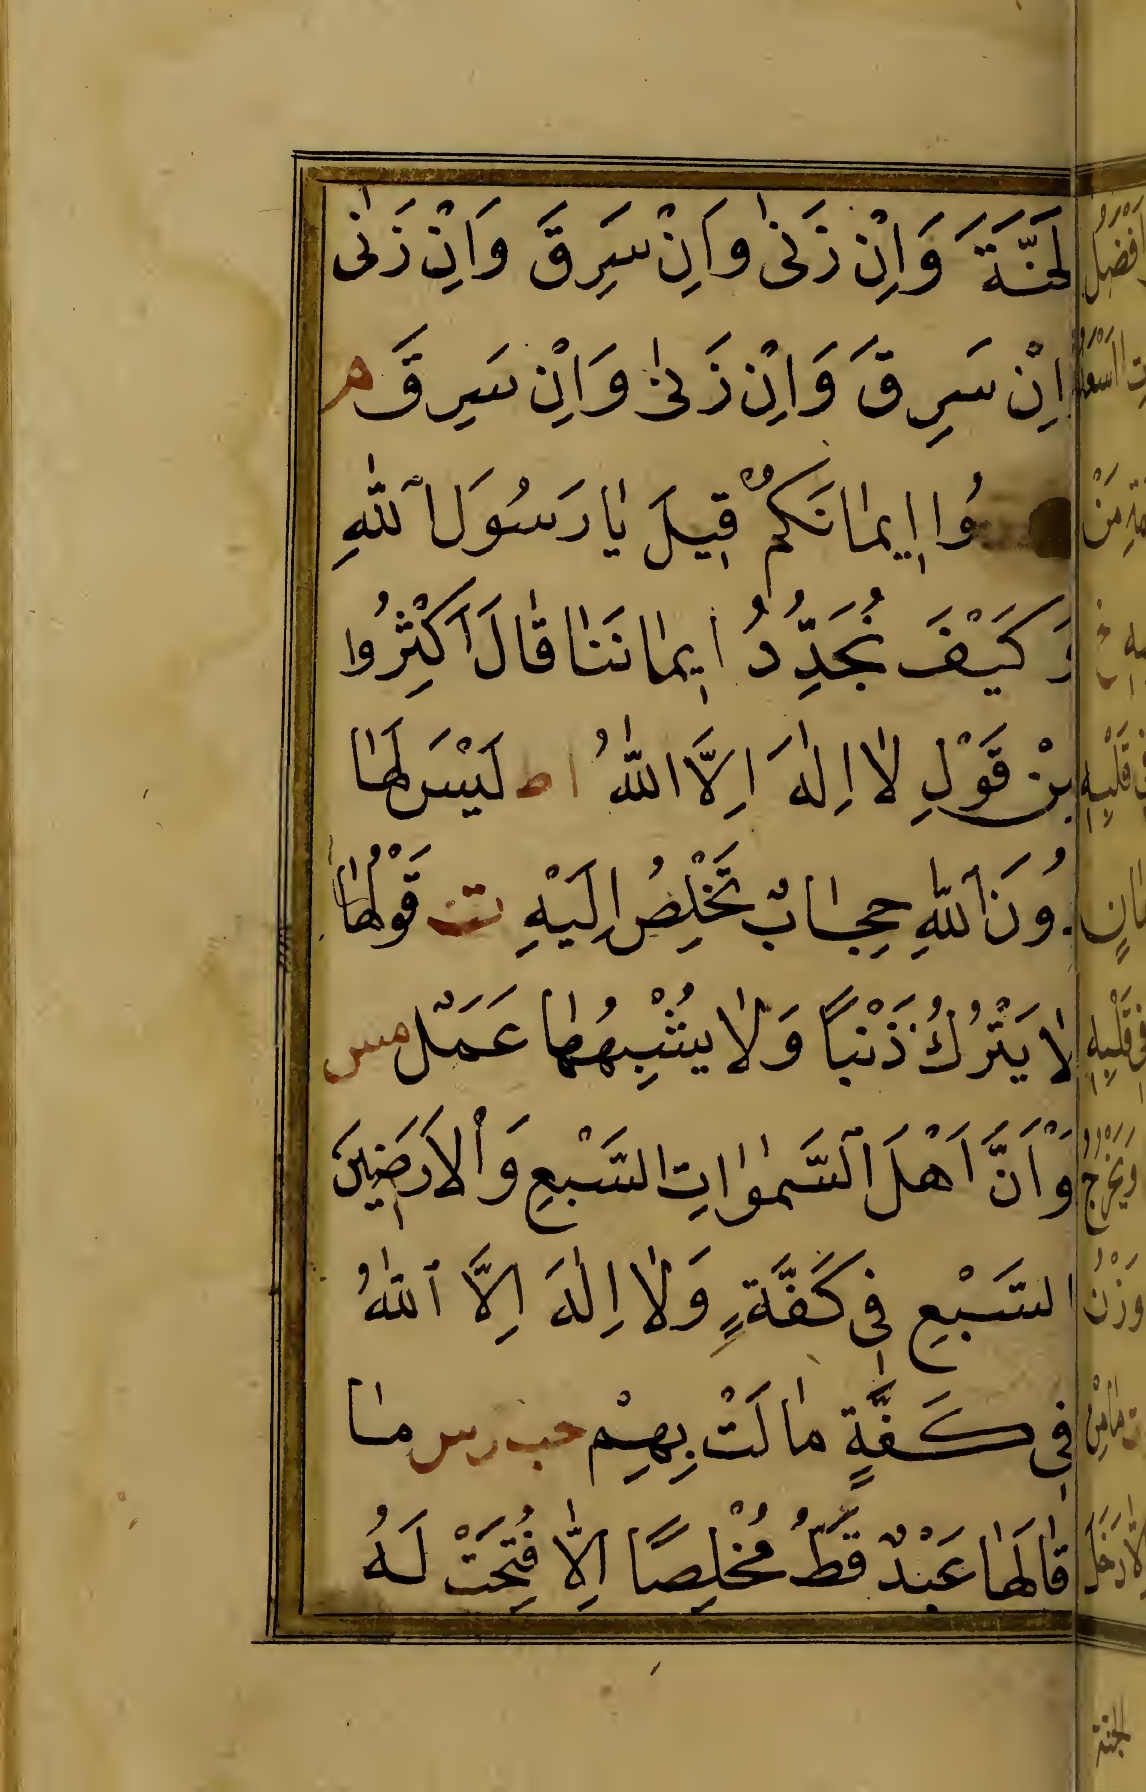 لْجَنَّةَ وَاِنْ زَنٰى وَاِنْ سَرِقَ وَاِنْ زَنٰى
اِنْ سَرِقَ وَاِنْ زَنٰى وَاِنْ سَرِقَ م
وُا اِيمٰانَكُمْ قِيلَ يٰا رَسُولَ اللّٰهِ
وَكَيْفَ نُجَدِّدُ اِيمٰانَنٰا قٰالَ اَكْثِرُوا
مِنْ قَوْلِ لٰا اِلٰهَ اِلَّا اللّٰهُ ا ط لَيْسَ لَهٰا
دُونَ اللّٰهِ حِجٰابٌ تَخْلُصُ اِلَيْهِ ت قَوْلُهٰا
لٰا يَتْرُكُ ذَنْبًا وَلٰا يُشْبِهُهٰا عَمَلٌ مس
وْ اَنَّ اَهْلَ السَّمٰوٰاتِ السَّبْعِ وَالْاَرَضِينَ
السَّبْعِ فِى كَفَّةٍ وَلٰا اِلٰهَ اِلَّا اللّٰهُ
فِى كَفَّةٍ مٰالَتْ بِهِمْ حب ر س مٰا
قٰالَهٰا عَبْدٌ قَطُّ مُخْلِصًا اِلّٰا فُتِحَتْ لَهُ
الجنة